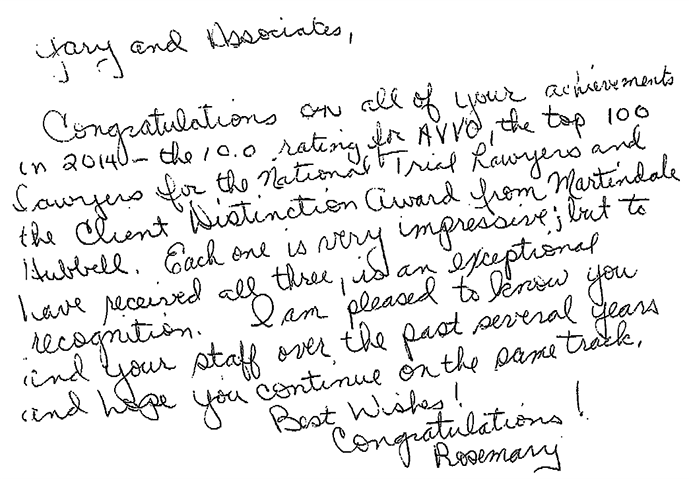 Gary and Associates,
Congratulations on all of your achievements
in 2014 - the 10.0 rating for AVVO, the top 100
Lawyers for the National Trial Lawyers and
the Client Distinction Award from Martindale
Hubbell. Each one is very impressive; but to
have received all three, is an exceptional
recognition. I am pleased to know you
and your staff over the past several years
and hope you continue on the same track.
Best Wishes!
Congratulations!
Rosemary